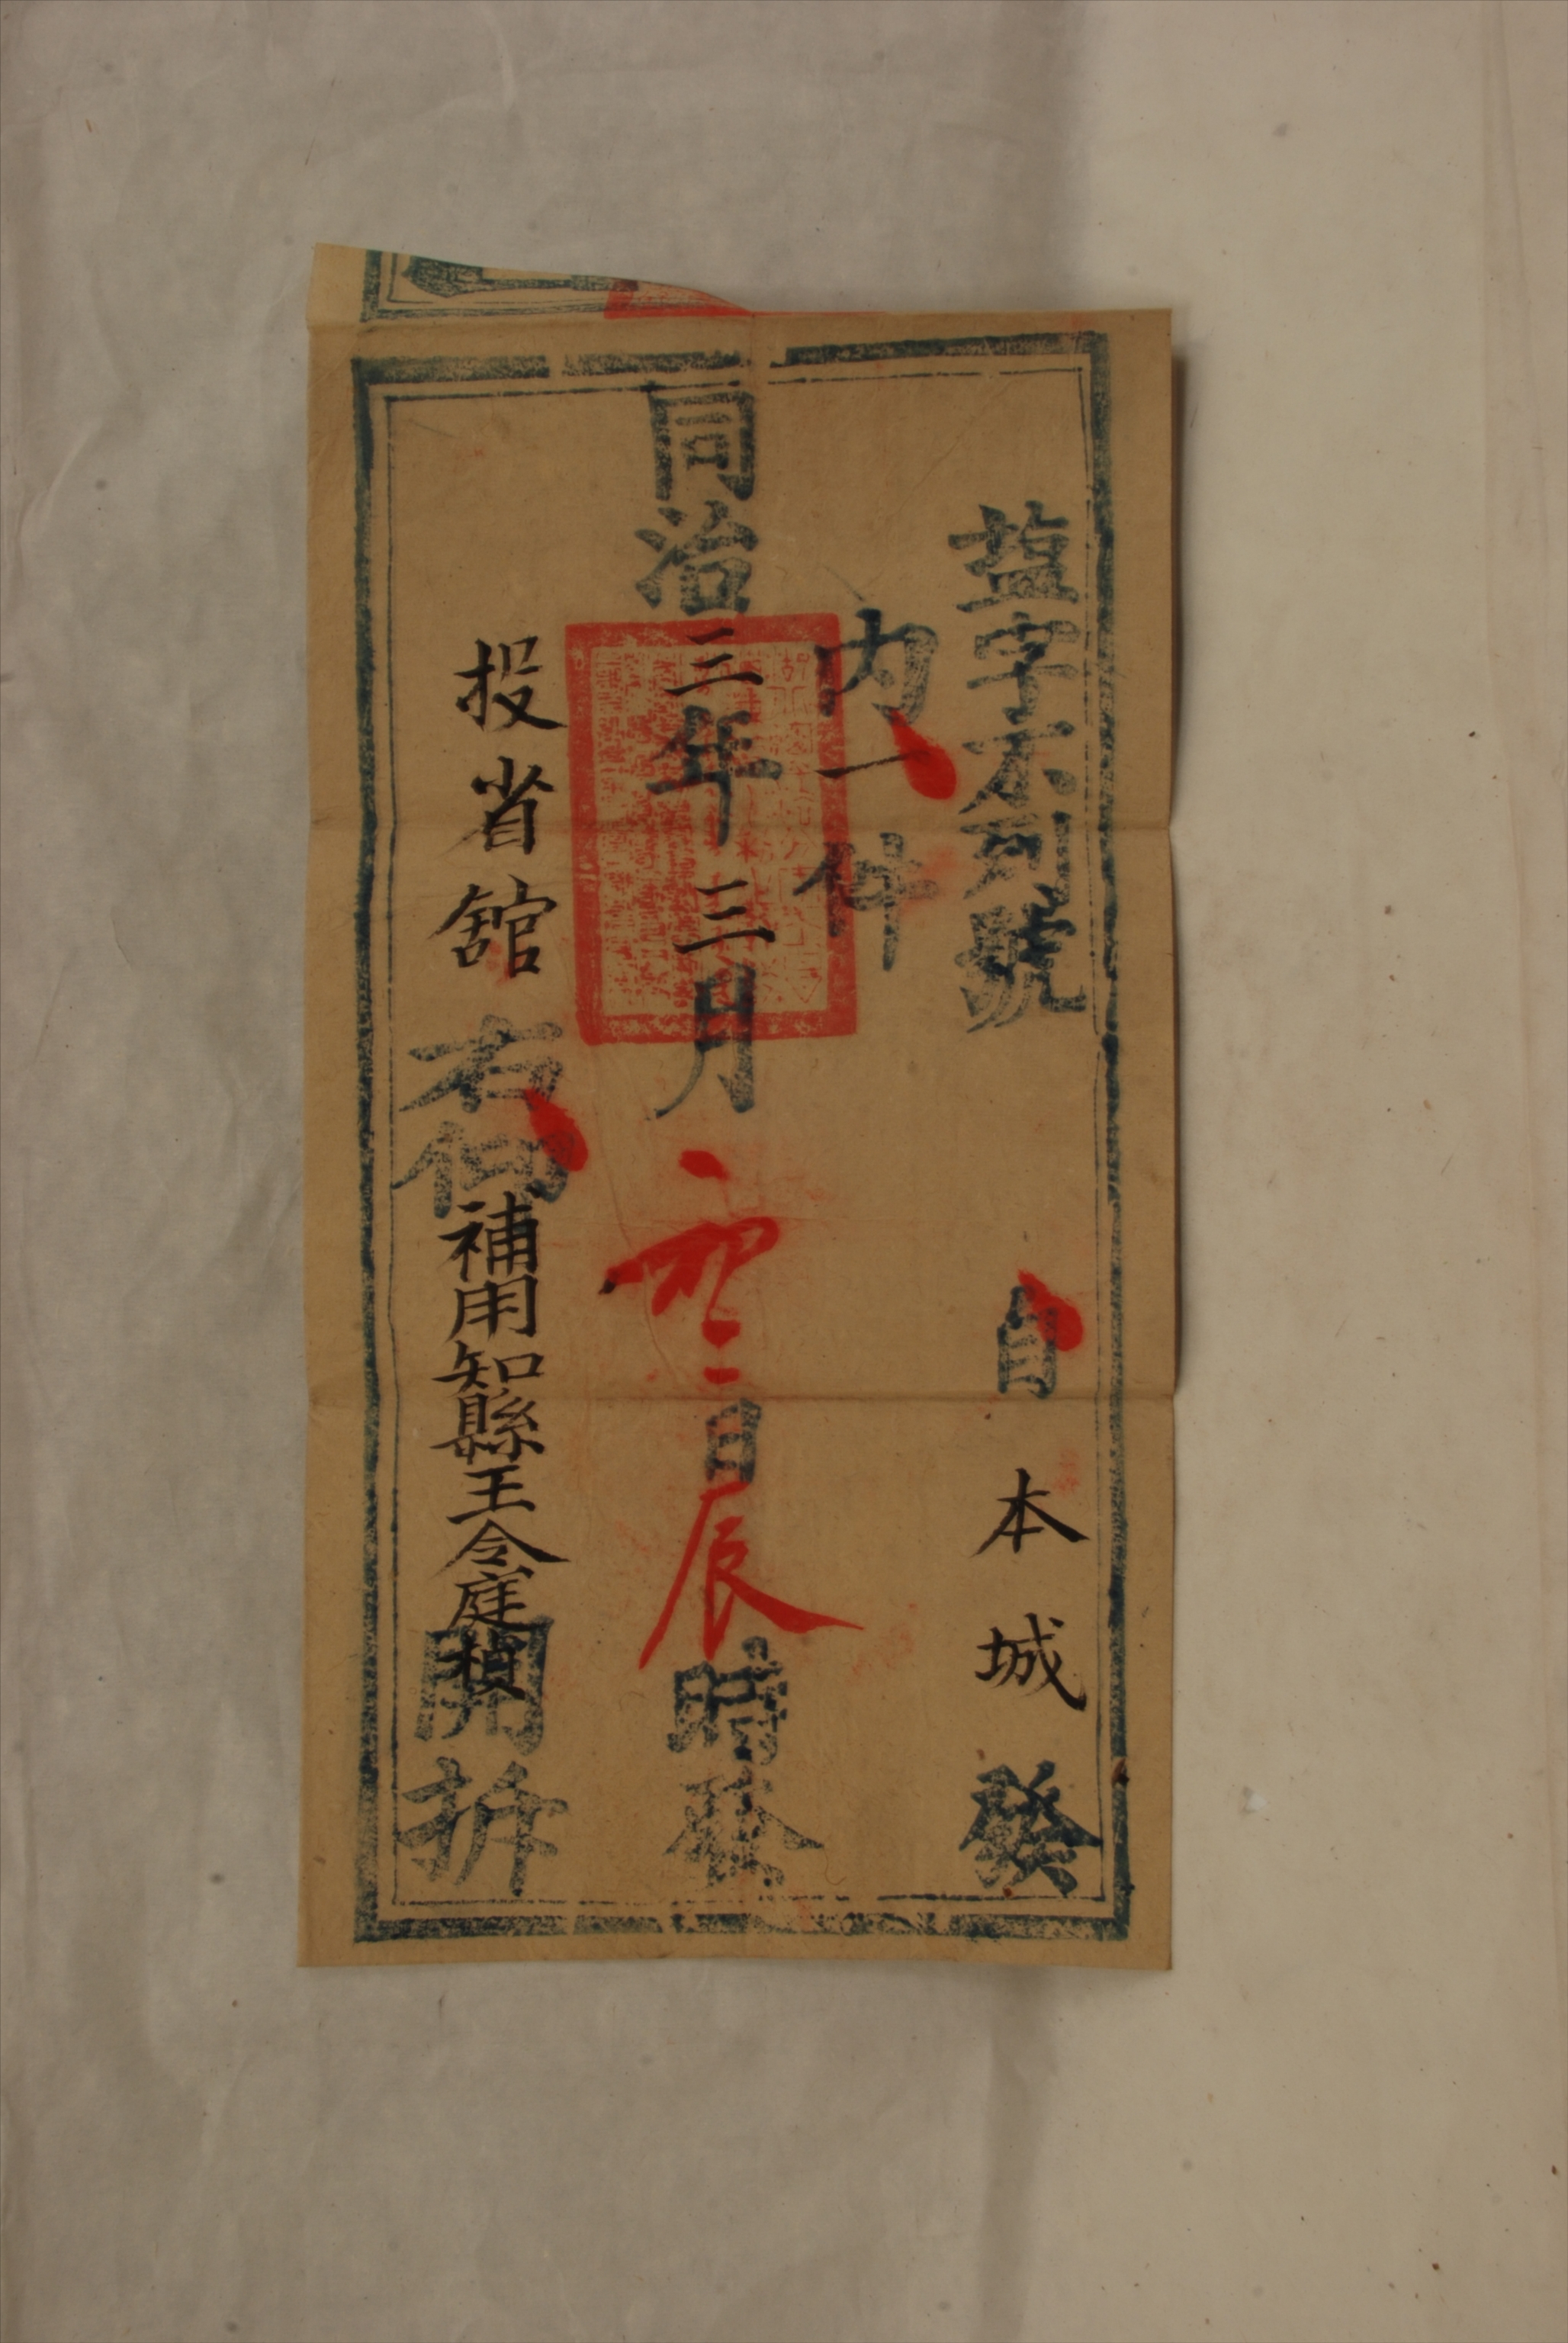 盐字不列號　自本城發
内一件
同治三年三月初二日辰時發
投省舘右仰補用知縣王令庭楨開拆